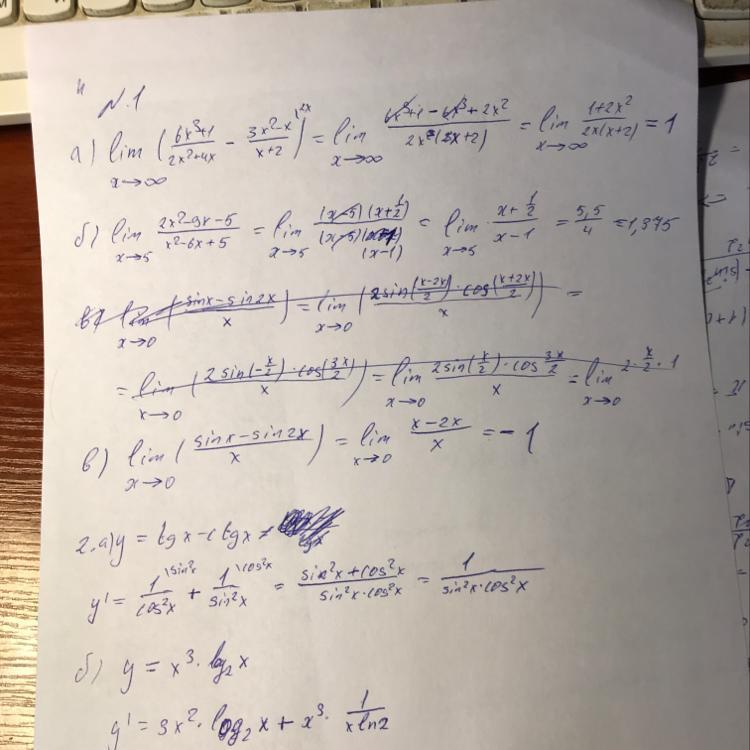 N.1
а) lim x→∞ ((6x³+1)/(2x²+4x) - (3x²-x)/(x+2) \2x) = lim x→∞ (6x³+1-6x³+2x²)/(2x(x+2)) = lim x→∞ (1+2x²)/(2x(x+2)) = 1
б) lim x→5 (2x²-9x-5)/(x²-6x+5) = lim x→5 ((x-5)(x+1/2))/((x-5)(x-1)) = lim x→5 (x+1/2)/(x-1) = 5,5/4 = 1,375
в) lim x→0 ((sinx-sin2x)/x) = lim x→0 ((2sin((x-2x)/2)·cos((x+2x)/2))/x) =
= lim x→0 ((2sin(-x/2)·cos(3x/2))/x) = lim x→0 (2sin(x/2)·cos 3x/2)/x = lim x→0 2·x/2·1
в) lim x→0 ((sinx-sin2x)/x) = lim x→0 (x-2x)/x = -1
2.а) y = tgx-ctgx =
y' = 1/cos²x \sin²x + 1/sin²x \cos²x = (sin²x+cos²x)/(sin²x·cos²x) = 1/(sin²x·cos²x)
б) y = x³·log₂x
y' = 3x²·log₂x + x³·1/(xln2)